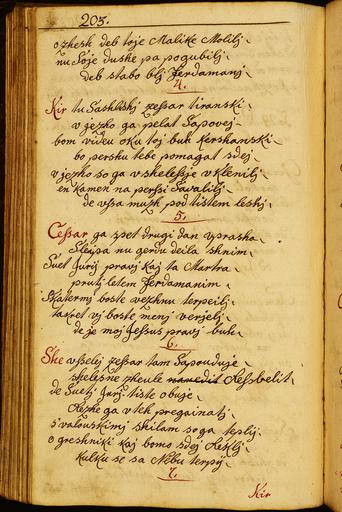 205.
ozhesk deb toje Malike Molilj
nu Soje dushe pa pogubilj
deb stabo blj Ferdamanj
4.
Kir tu Sashlishj zessar tiranski
v jezho ga pelat Sapovej
bom vidu oku toj buh Kershanski
bo pershu tebe pomagat sdej
v jezho so ga v shelesje vklenilj
en kamen na perssi Lavalilj
de vssa muzh pod tistem leshj
5.
Cessar ga spet drugi dan vprasha
Slejpa nu gerdu dejla shnim
Suet Jurij pravj kaj ta Martra
prutj letem Ferdamanim
Skatermj boste vezhnu terpeilj
taköt vj boste menj verjelj
de je moj Jessus pravj buh
6.
She vsselej zessar tam Sapoduje
shelesne zheule naredit Kessbelit
de Suetj Jurj tiste obuje
Kezhe ga v tek pregainatj
s'valouskimj shilam so ga teplij
o greshniki kaj bomo sdej Keklj
kulku se sa Nebu terpij
7.
Kir